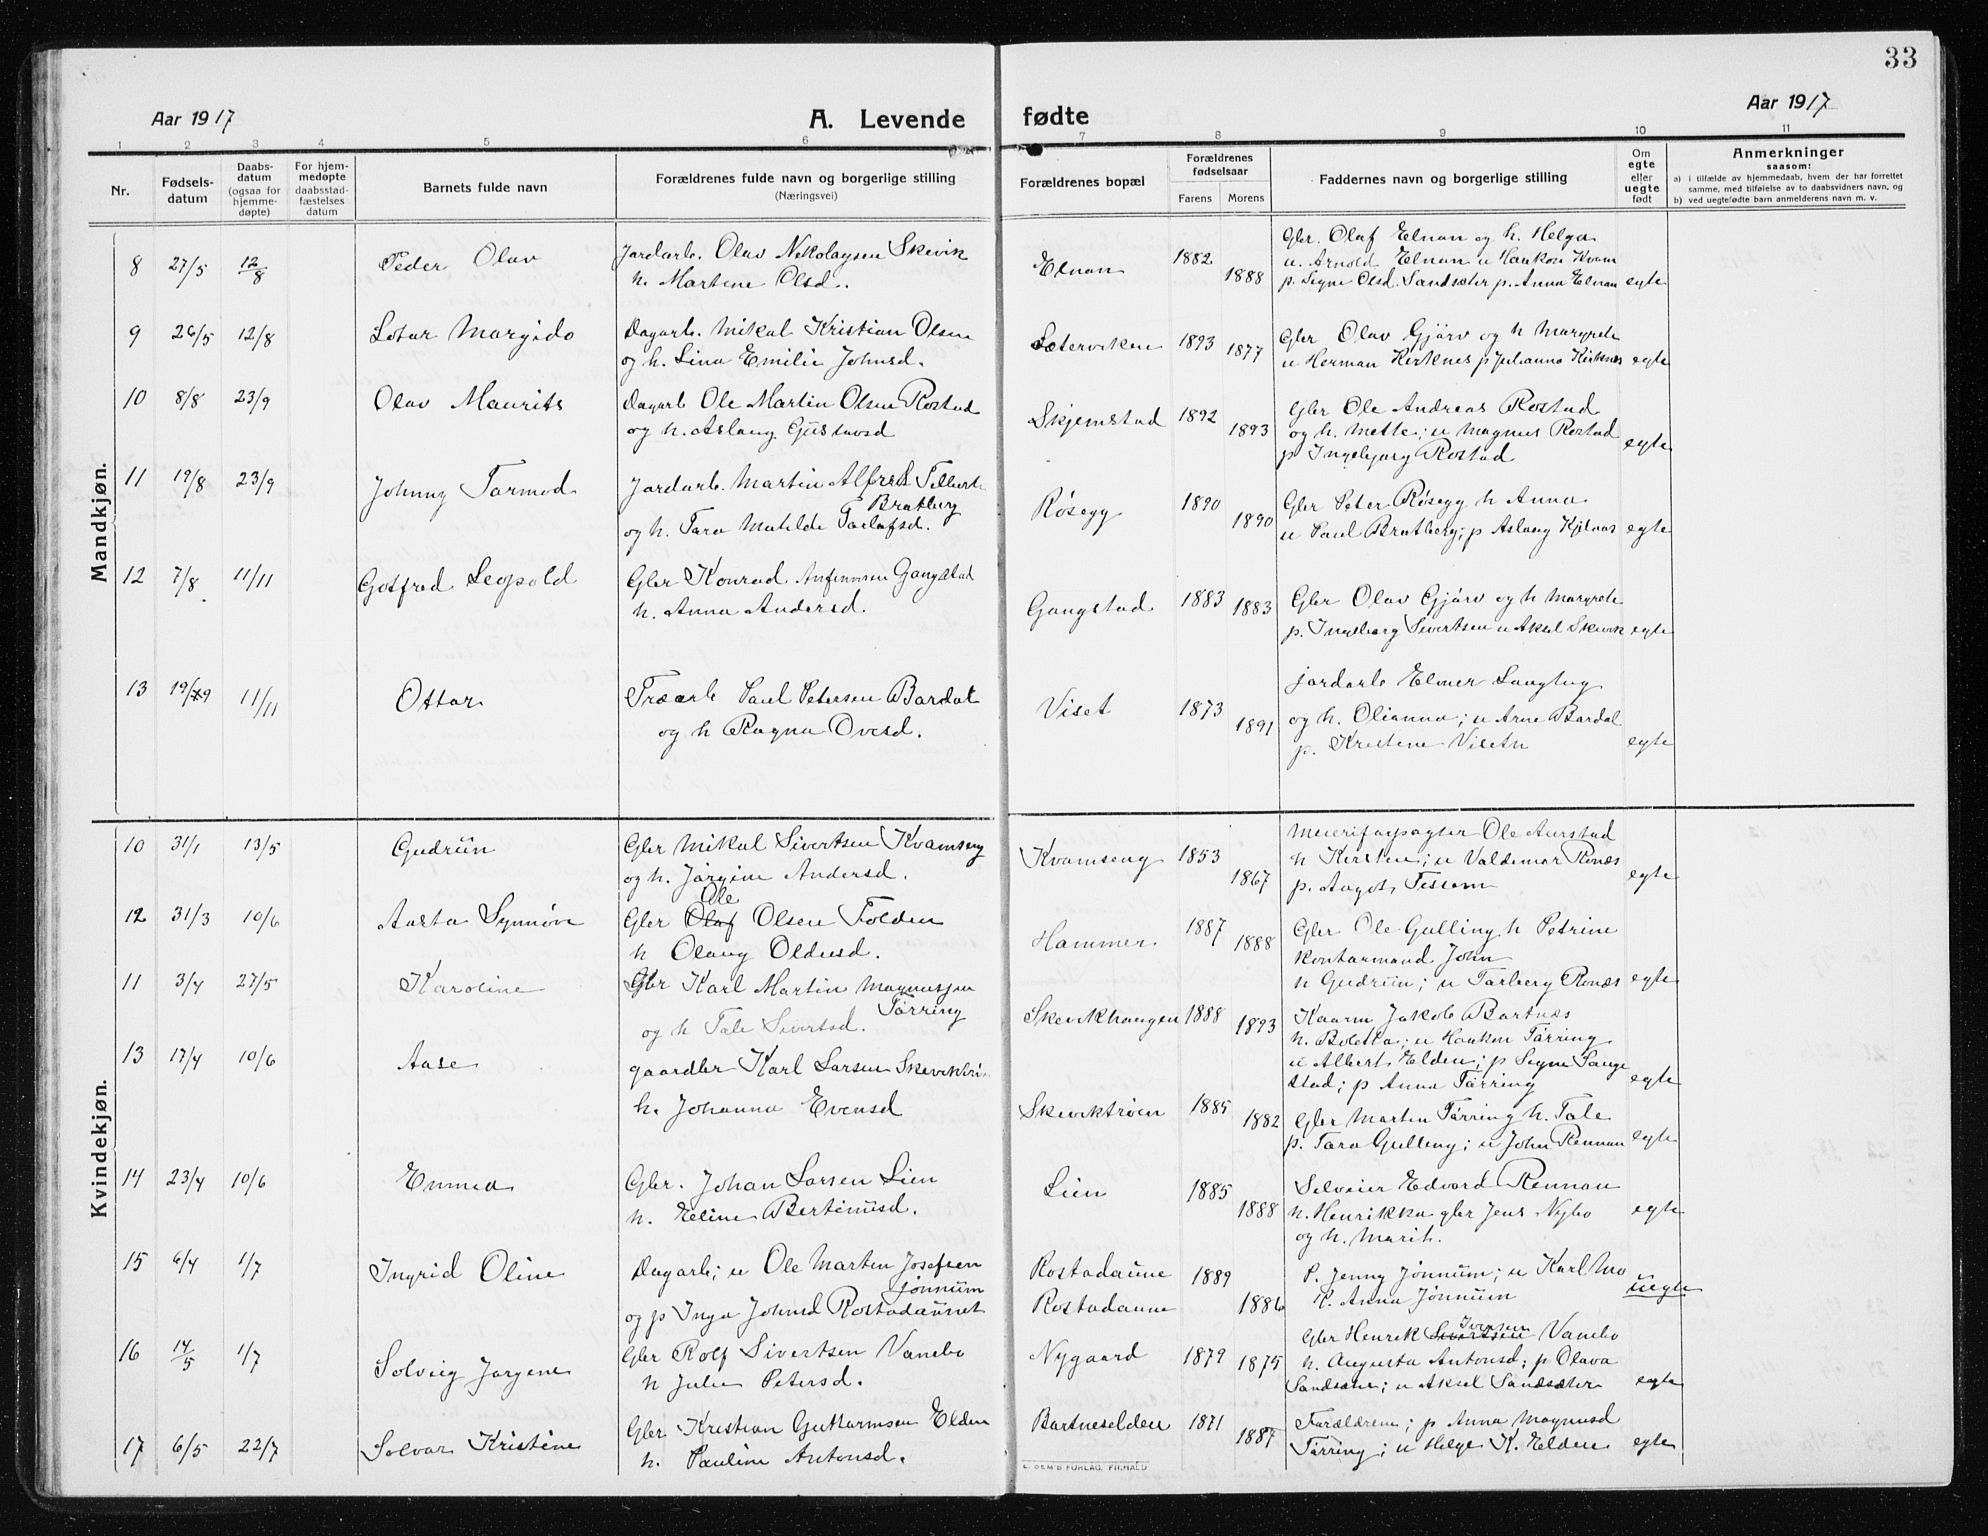 33
Aar 1917
A. Levende fødte
Aar 1917
1 2 3 4 5 6 7 8 9 10 11
Nr.
Fødsels-
datum
Daabs-
datum
(ogsaa for
hjemme-
døpte)
For hjem-
medøpte
daabsstad-
fæstelses
datum
Barnets fulde navn
Forældrenes fulde navn og borgerlige stilling
(Næringsvei)
Forældrenes bopæl
Forældrenes
fødselsaar
Farens Morens
Faddernes navn og borgerlige stilling
Om
egte
eller
uegte
født
Anmerkninger
saasom:
a) i tilfælde av hjemmedaab, hvem der har forrettet
samme, med tilføielse av to daabsvidners navn, og
b) ved uegtefødte barn anmelderens navn m. v.
Mandkjøn.
8 27/5 12/8 Peder Olav
Jordarb. Olav Nikolaysen Skevik
h. Martine Olsd.
Elnan 1882 1888
Gbr. Olaf Elnan og h. Helga
u. Arnold Elnan u Haakon Kvam
p. Signe Olsd. Sandsæter p. Anna Elnan egte
9 26/5 12/8 Lotar Margido
Dagarb. Mikal Kristian Olsen
og h. Lina Emilie Johnsd.
Sæterviken 1893 1877
Gbr Olav Gjørv og h Margrete
u Herman Kirknes p Julianna Kirknes egte
10 8/8 23/9 Olav Maurits
Dagarb Ole Martin Olsen Rostad
og h. Aslaug Gustavsd
Skjemstad 1892 1893
Gbr Ole Andreas Rostad
og h. Mette; u Magnus Rostad
p Ingebjørg Rostad egte
11 19/8 23/9 Johnny Tormod
Jordarb. Martin Alfred
Bratberg
og h. Tora Matilde Toelofsd.
Røsegg 1890 1890
Gbr Peter Røsegg h Anna
u Paul Bratberg; p Aslaug egte
12 7/8 11/11 Gotfred Leopold
Gbr Konrad Anfinnsen Gangstad
h. Anna Andersd.
Gangstad 1883 1883
Gbr Olav Gjørv og h Margrete
p. Ingeborg Sivertsen u Aksel Skevik egte
13 19/9 11/11 Ottar
Træarb Paul Petersen Bardal
og h Ragna Ovesd.
Viset 1873 1891
jordarb Elmer Langhug
og h. Olianna; u Arne Bardal
p. Kristine Viseth egte
Kvindekjøn.
10 31/1 13/5 Gudrun
Gbr Mikal Sivertsen Kvamseng
og h. Jørgine Andersd.
Kvamseng 1853 1867
Meieriforpagter Ole Aurstad
h Kirsten; u Valdemar Rønes
p. Aagot Tessem egte
12 31/3 10/6 Aasta Synnøve
Ole
Gbr Olaf Olsen Folden
h Olaug Oldusd.
Hammer 1887 1888
Gbr Ole Gulling h Petrine
Kontormand John
h Gudrun; u Torberg Rones egte
11 3/4 27/5 Karoline
Gbr Karl Martin Magnussen
Tørring
og h Tale Sivertsd.
Skevikhaugen 1888 1893
Kaarm Jakob Bartnes
h. Boletta; u Haakon Tørring
u Albert Elden; p Signe Lange
stad; p Anna Tørring egte
13 17/4 10/6 Aase
gaardbr Karl Larsen
h. Johanna Evensd
Skeviktrøen 1885 1882
Gbr Martin Tørring h. Tale
p. Tora Gulling; u John Rennan egte
14 23/4 10/6 Emma
Gbr. Johan Larsen Lien
h. Eline Bertinusd.
Lien 1885 1888
Selveier Edvard Rennan
h. Henrikka gbr Jens Nybo
og h. Marit. egte
15 6/4 1/7 Ingrid Oline
Dagarb; u Ole Martin Josefsen
Jønnum
og p Inga Johnsd Rostadaunet
Rostadaune
Rostadaune 1889 1886
P. Jenny Jønnum; u Karl Mo
K. Anna Jønnum uegte
16 14/5 1/7 Solveig Jørgene
Gbr Rolf Sivertsen Vanebo
h Julie Petersd.
Nygaard 1879 1875
Iversen
Gbr Henrik Sivertsen Vanebo
h. Augusta Antonsd; p Olava
u Aksel Sandsæter egte
17 6/5 22/7 Solvor Kristine
Gbr Kristian Guttormsen Elden
h. Pauline Antonsd.
Bartneselden 1871 1887
Forældrene; p Anna Magnusd
Tørring; u Helge K. Elden egte
E. SEM'S FORLAG, FR.HALD